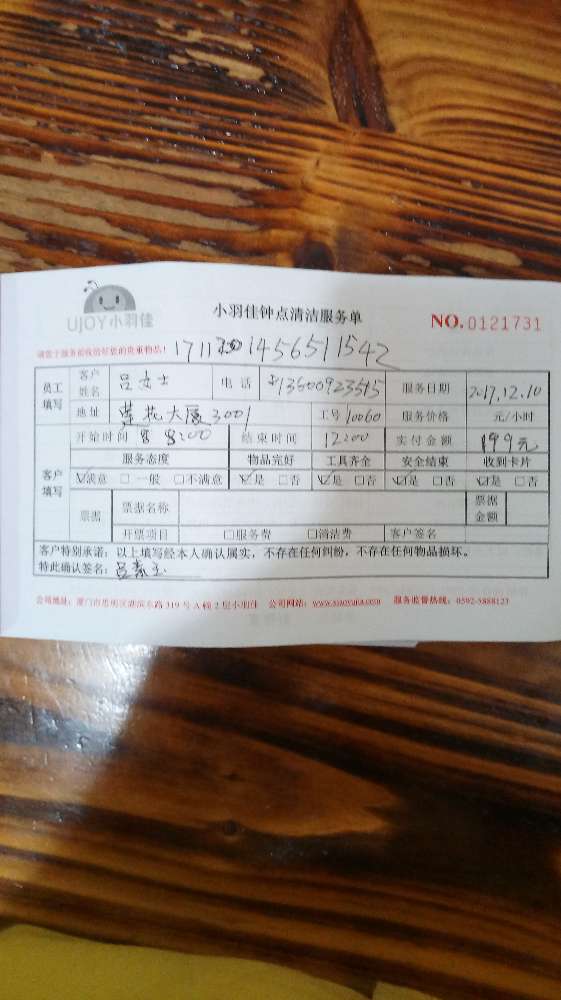 UJOY小羽佳
小羽佳钟点清洁服务单
NO.0121731
请您于服务前收拾好您的贵重物品!
员工填写 客户姓名 吕女士 电话 13600923515 服务日期 2017.12.10
地址 莲花大厦3001 工号 10060 服务价格 元/小时
开始时间 8:00 结束时间 12:00 实付金额 199元
客户填写 服务态度 物品完好 工具齐全 安全结束 收到卡片
☑满意 □一般 □不满意 ☑是 □否 ☑是 □否 ☑是 □否 ☑是 □否
票据 票据名称 票据金额
开票项目 □服务费 □清洁费 客户签名
客户特别承诺:以上填写经本人确认属实,不存在任何纠纷,不存在任何物品损坏。
特此确认签名:吕
公司地址:厦门市思明区湖滨东路319号A幢2层小羽佳 公司网站: 服务监督热线:0592-5888123